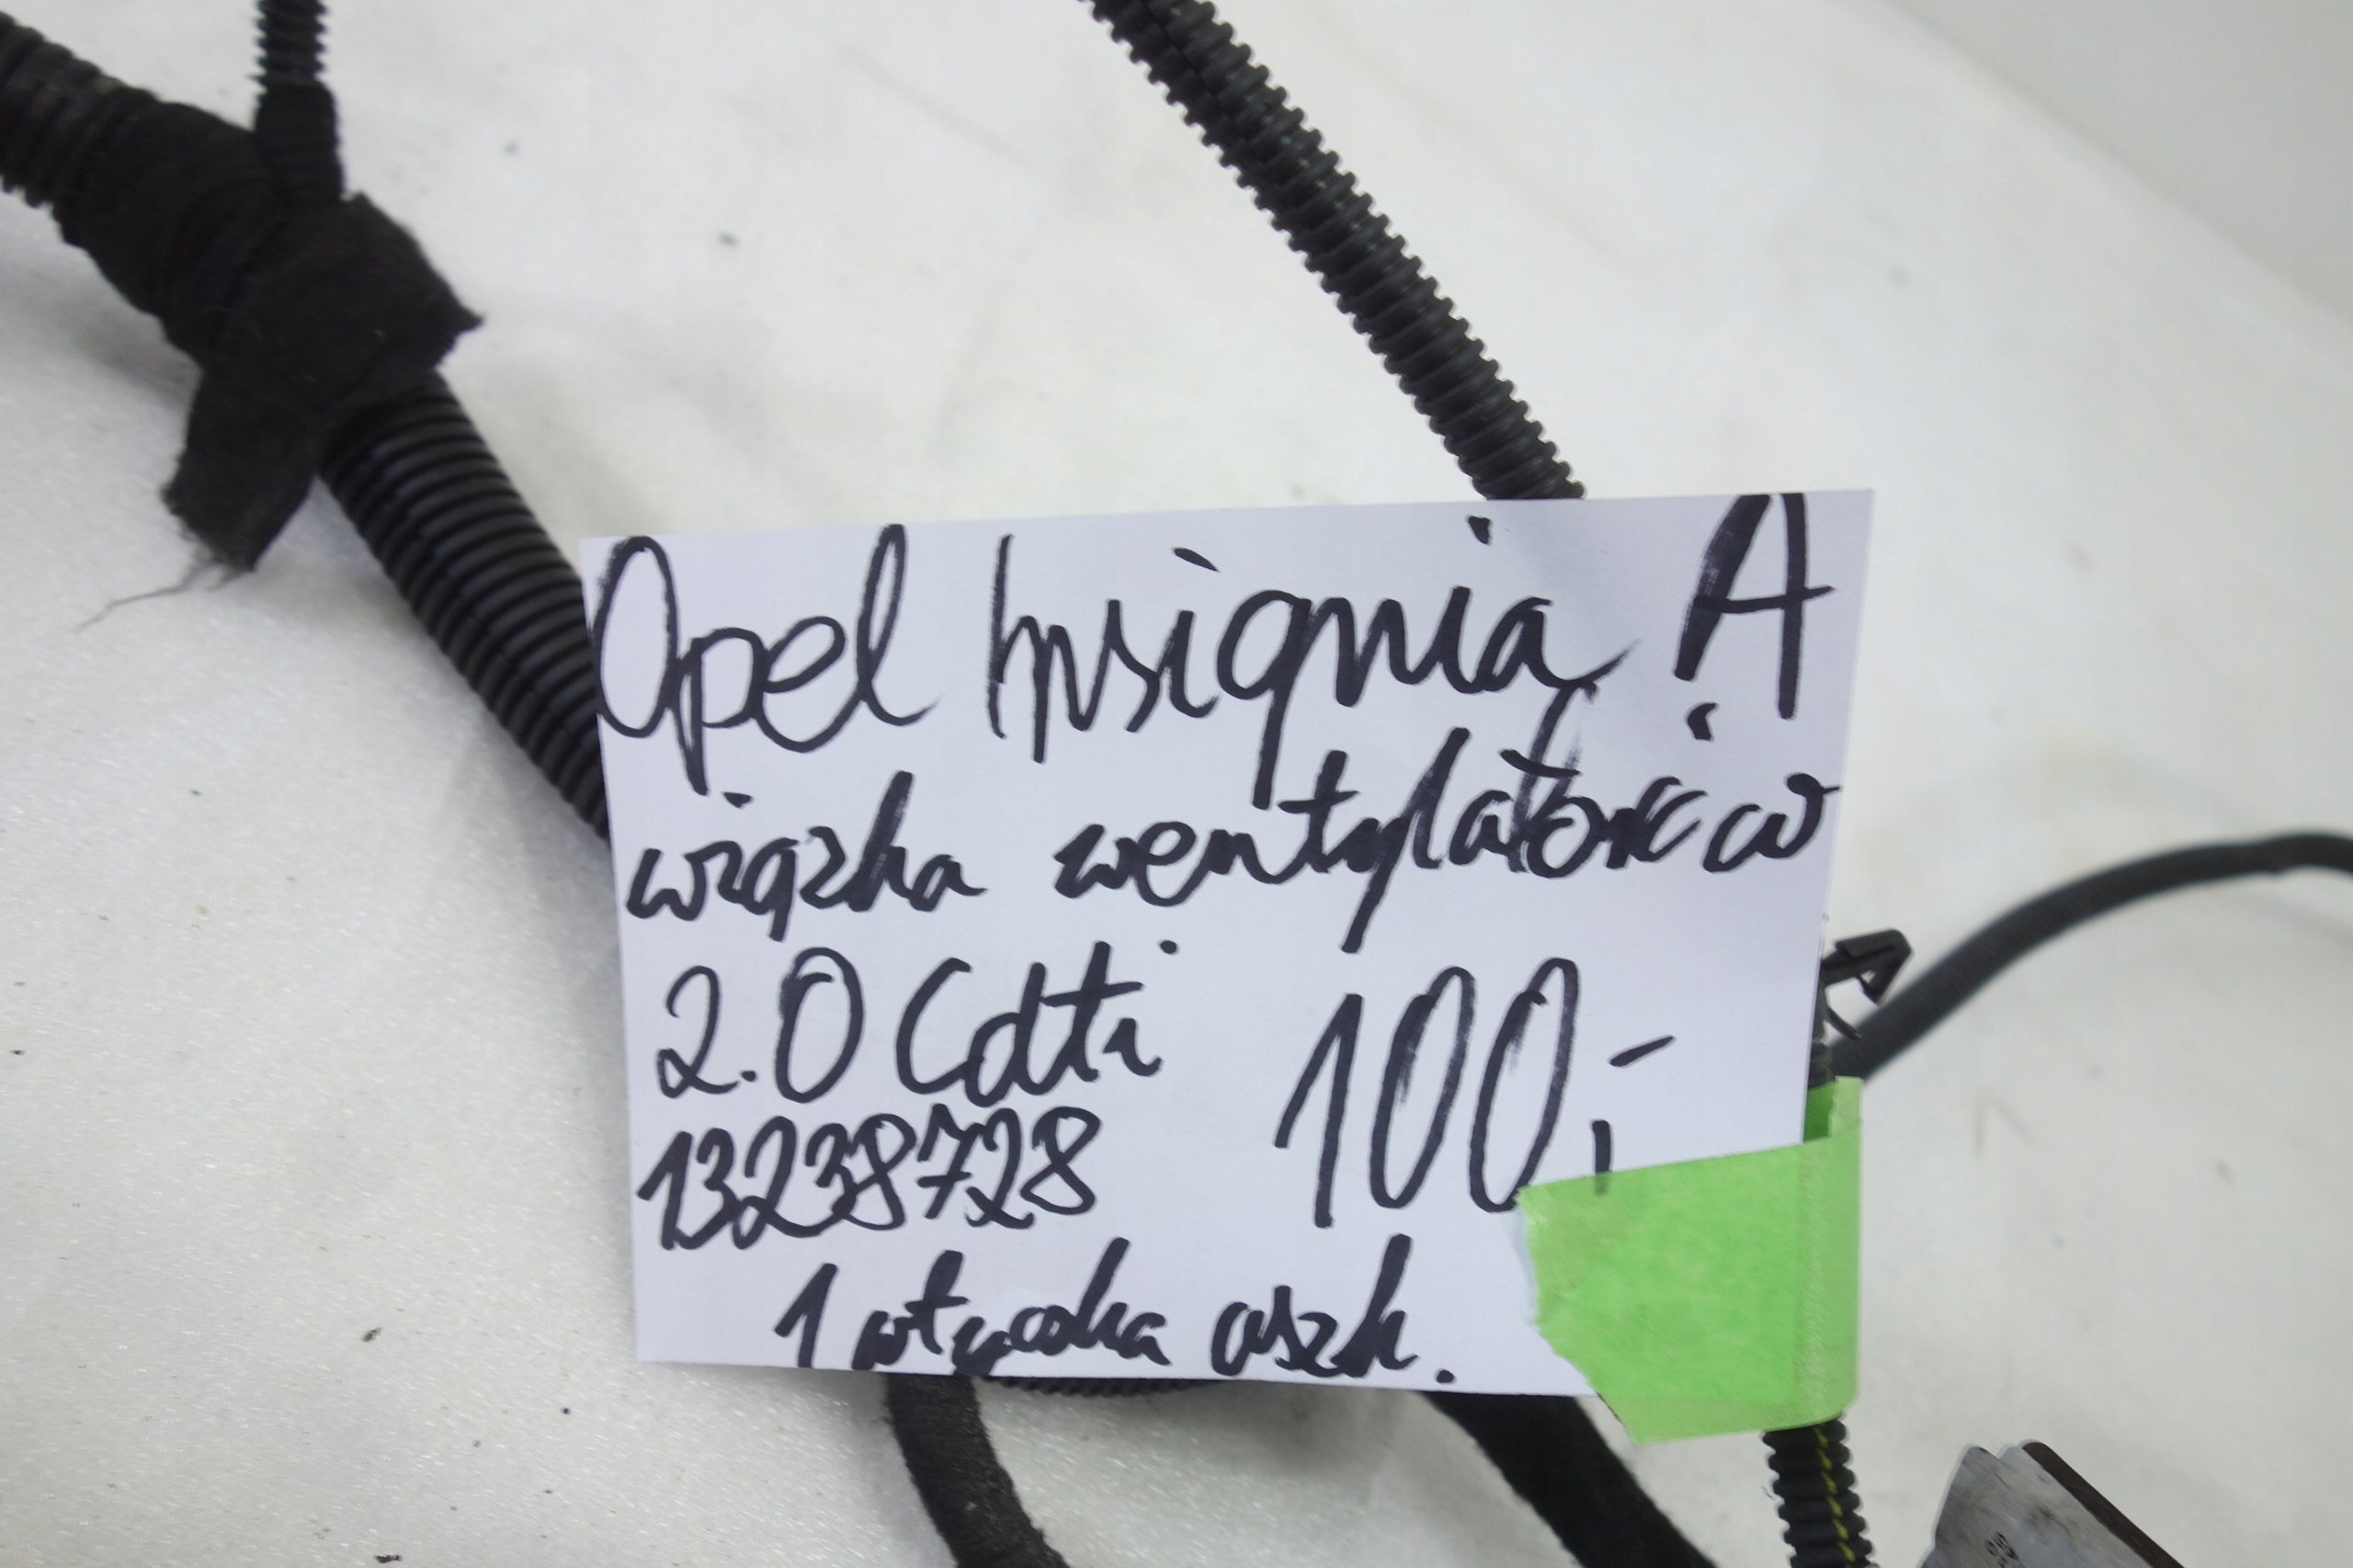 Opel Insignia A
wiązka wentylatorów
2.0 Cdti 100,-
13238728
1 wtyczka uszk.